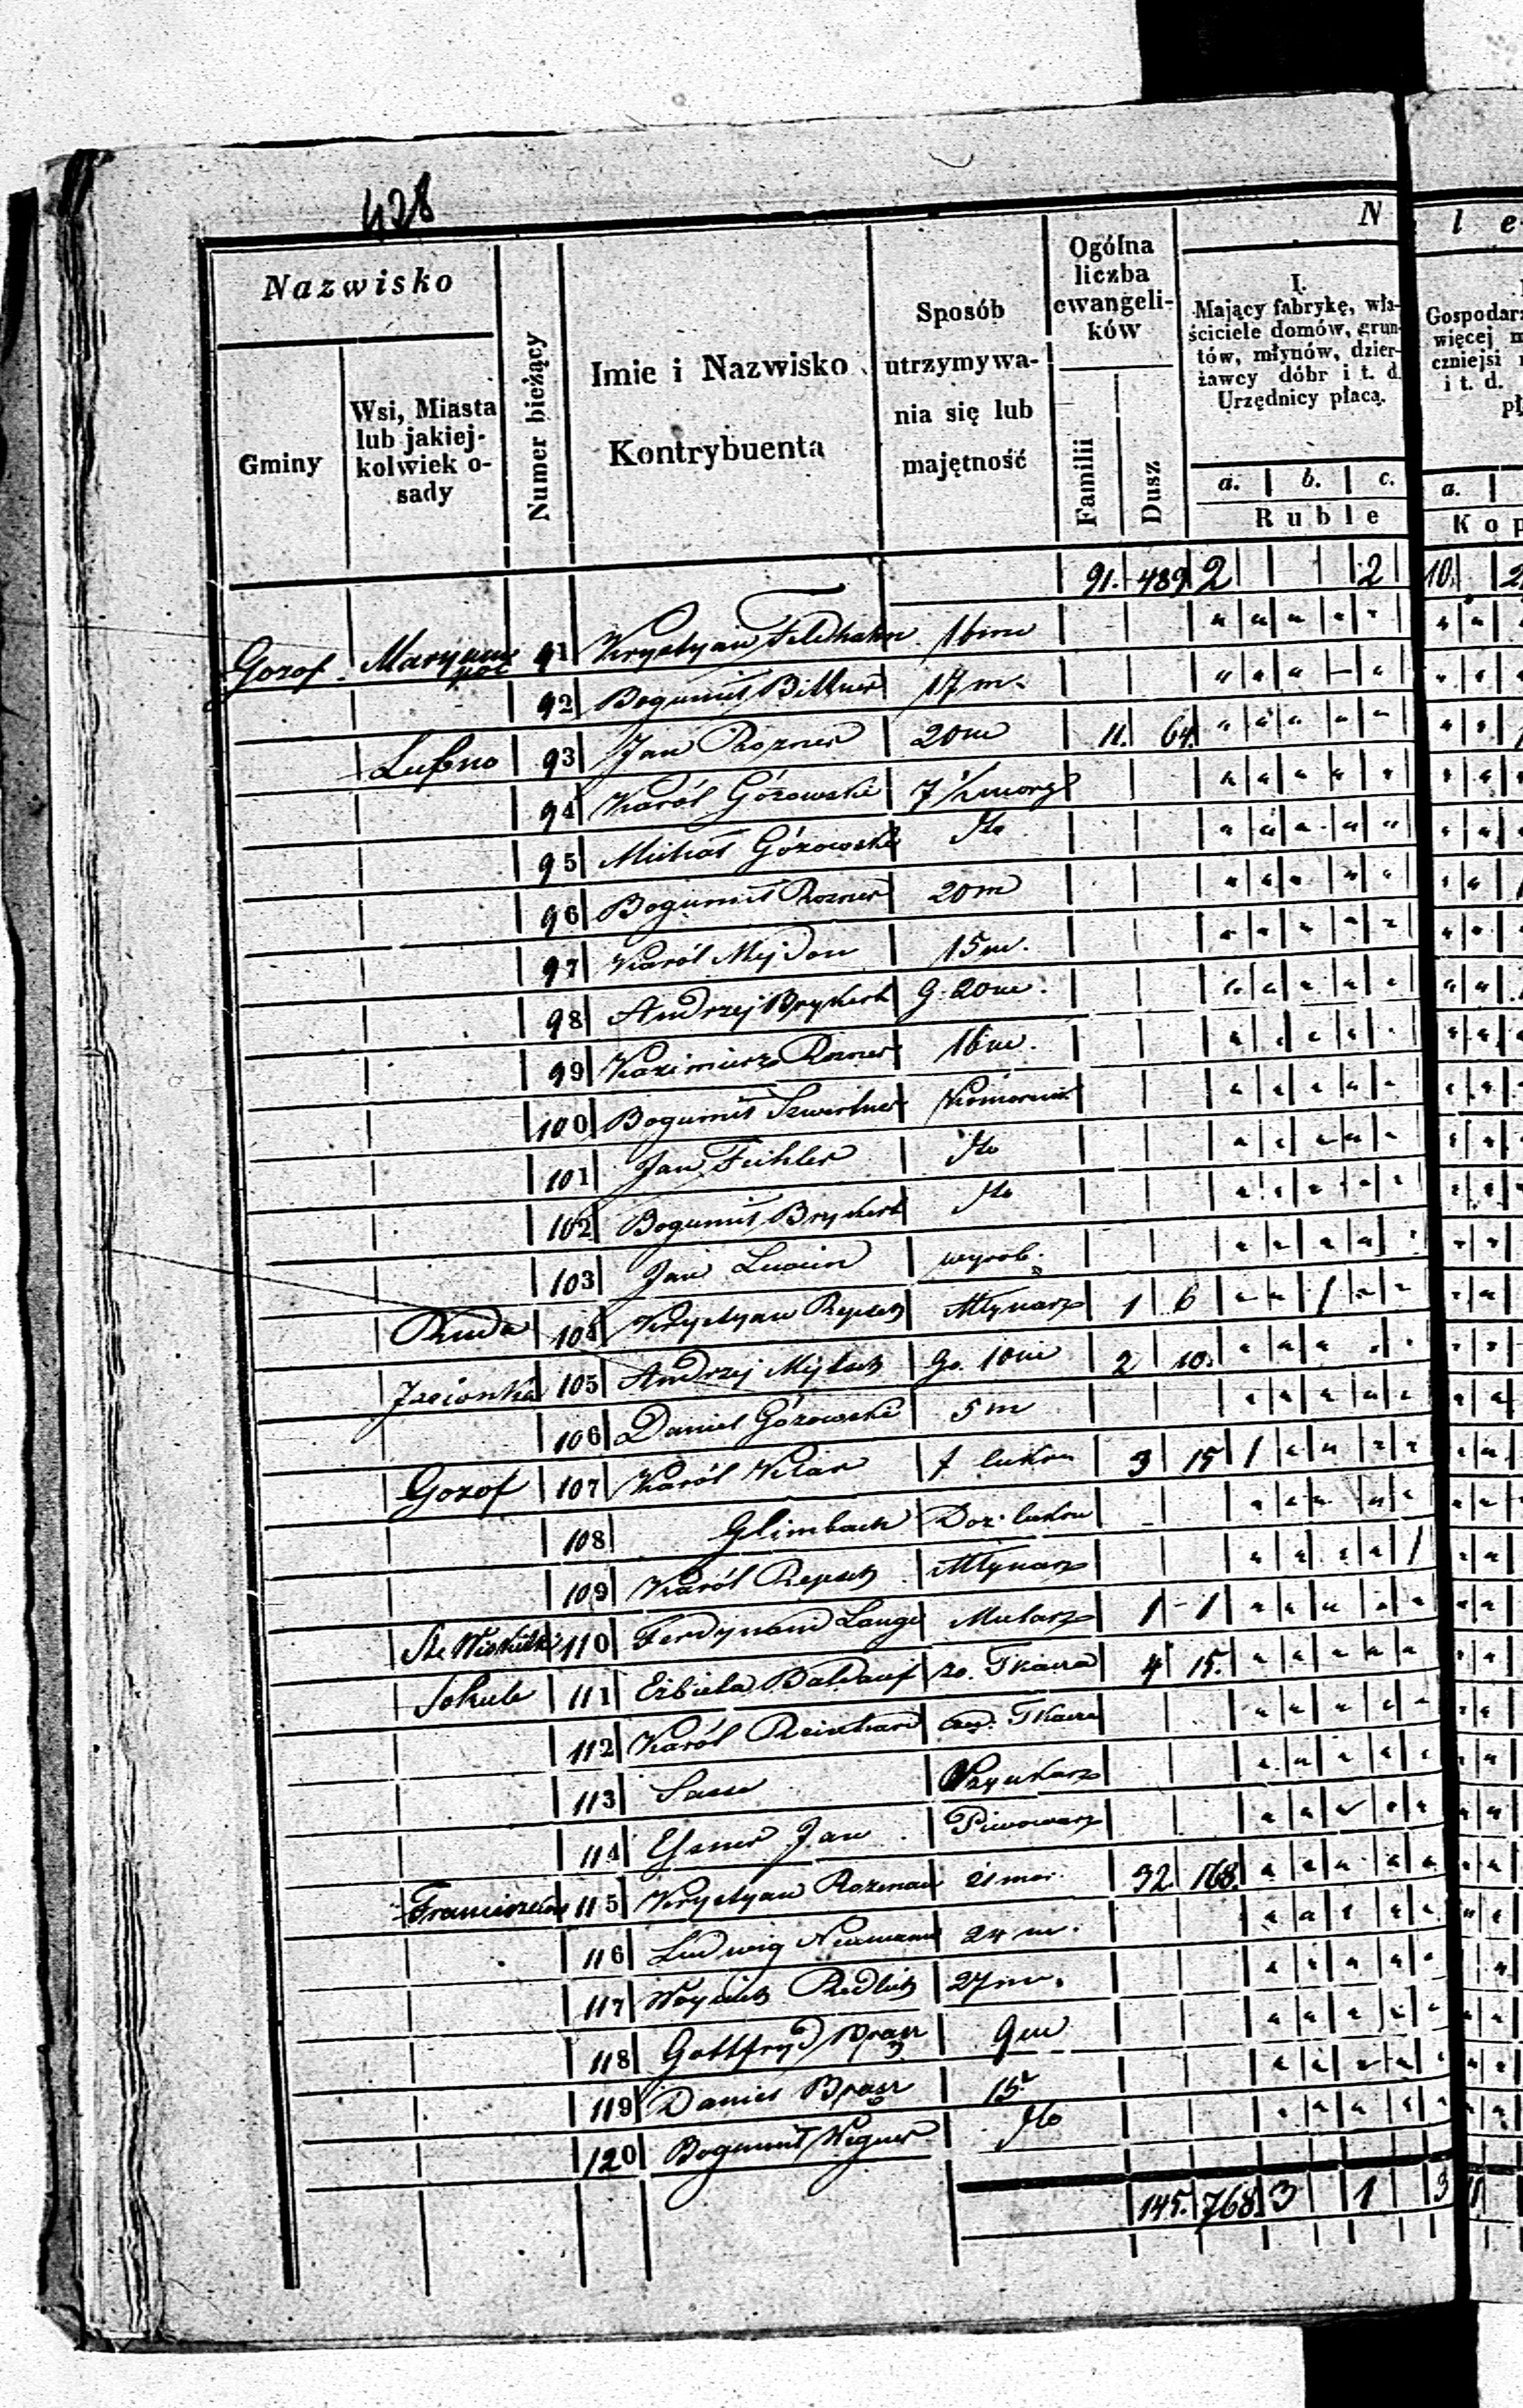 428
N
l e
Nazwisko
Gminy
Wsi, Miasta
lub jakiej-
kolwiek o-
sady
Numer bieżący
Imie i Nazwisko
Kontrybuenta
Sposób
utrzymywa-
nia się lub
majętność
Ogólna
liczba
ewangeli-
ków
Familii
Dusz
I.
Mający fabrykę, wła-
ściciele domów, grun-
tów, młynów, dzier-
żawcy dóbr i t. d.
Urzędnicy płacą.
a. b. c.
Ruble
Gospodar
więcej
czniejsi
i t. d.
pł
a.
Kop
91. 489. 2 2 10.
Gozof. Maryam pol 91 Krystyan Feldhahn 16m
92 Bogumił Bittner 17 m.
Lusno 93 Jan Rozner 20m 11. 64.
94 Karól Górowski 7 ½ morg
95 Michał Górowski dto
96 Bogumił Rozner 20m
97 Karól Mejdon 15 m.
98 Andrzej Brykert G. 20m.
99 Kazimierz Rozner 16m.
100 Bogumił Szwertner Komornik
101 Jan Feihler dto
102 Bogumił Brykert dto
103 Jan wyrob.
Ruda 104 Krystyan Repsch Młynarz 1 6 1
Jasionka 105 Andrzej Go. 10m 2 10.
106 Daniel Górowski 5 m
Gozof 107 Karól Klar f cukru 3 15 1
108 Glimbach Doz. cukru
109 Karól Repsch Młynarz 1
110 Ferdynand Lange Mularz 1 - 1
Sokule 111 Elżbieta Baldauf zo. Tkacza 4 15.
112 Karól Reinhard czep. Tkacza
113 Sasse Szynkarz
114 Essner Jan Piwowarz
115 Krystyan Rozman 21 mor. 32 168.
116 Ludwig Neumann 24 m.
117 Woyciech Redlich 27 m.
118 Gottfryd 9m
119 Daniel 15.
120 Bogumił Wegner dto
145. 768. 3 1 3